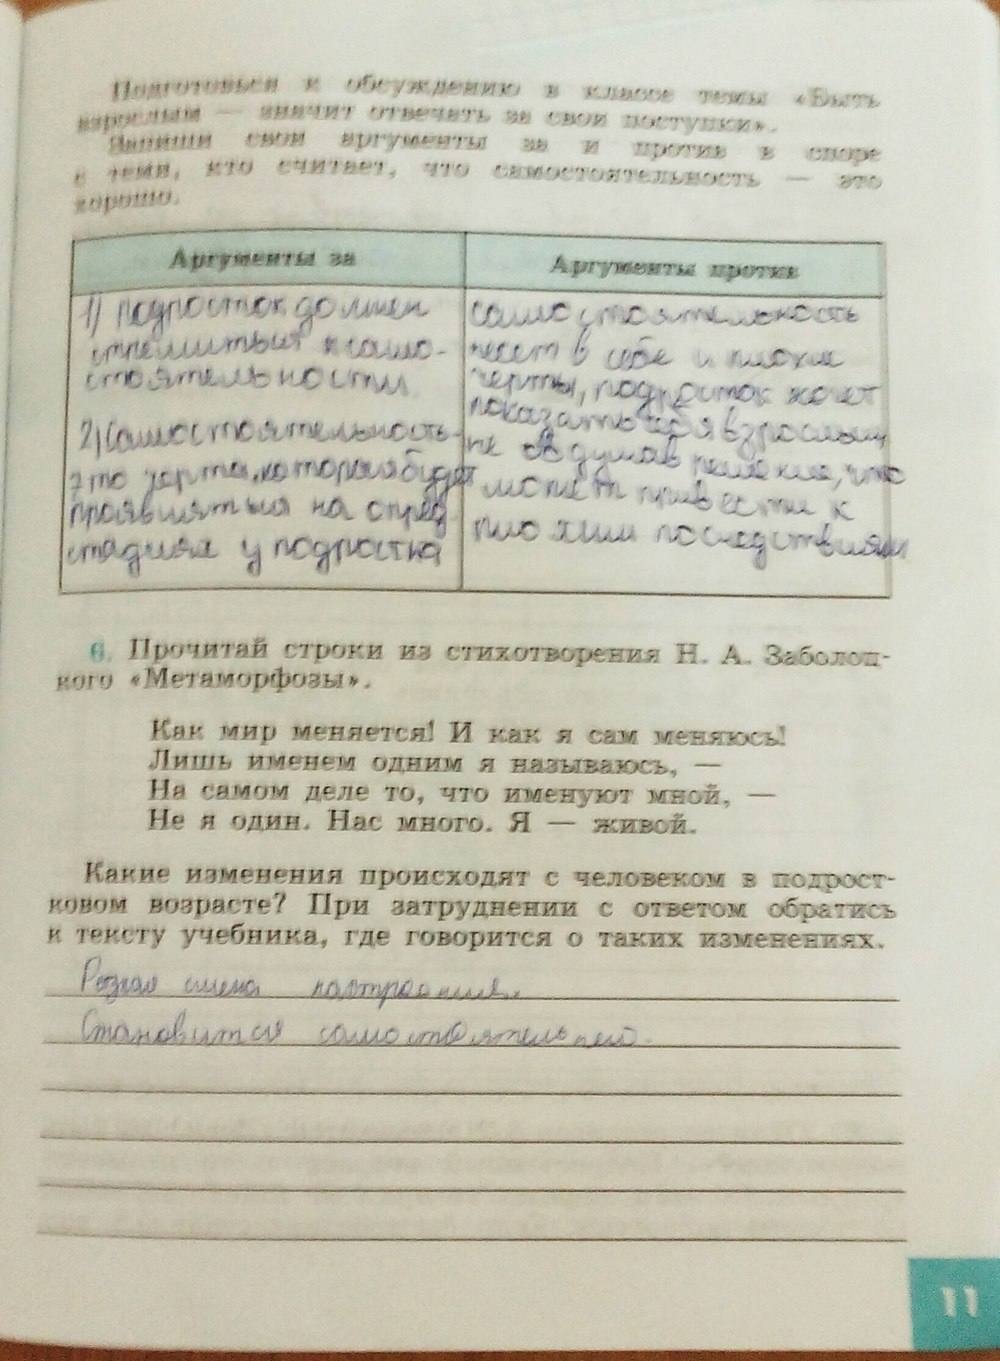 Подготовься к обсуждению в классе темы «Быть
взрослым — значит отвечать за свои поступки».
Запиши свои аргументы за и против в споре
с теми, кто считает, что самостоятельность — это
хорошо.
Аргументы за
1) подросток должен
стремиться к само-
стоятельности
2) Самостоятельность-
это черта, которая будет
проявляться на опред.
стадиях у подростка
Аргументы против
самостоятельность
несет в себе и плохие
черты, подросток хочет
показать себя взрослым,
не обдумав решение, что
может привести к
плохим последствиям
6. Прочитай строки из стихотворения Н. А. Заболоц-
кого «Метаморфозы».
Как мир меняется! И как я сам меняюсь!
Лишь именем одним я называюсь, —
На самом деле то, что именуют мной, —
Не я один. Нас много. Я — живой.
Какие изменения происходят с человеком в подрост-
ковом возрасте? При затруднении с ответом обратись
к тексту учебника, где говорится о таких изменениях.
Резкая смена настроения.
Становится самостоятельней.
11